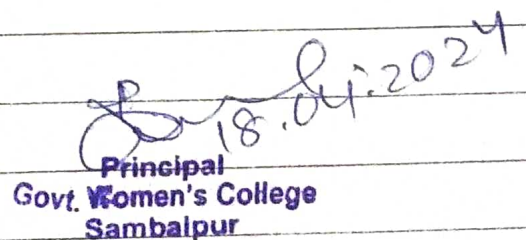 18.04.2024
Principal
Govt. Women's College
Sambalpur